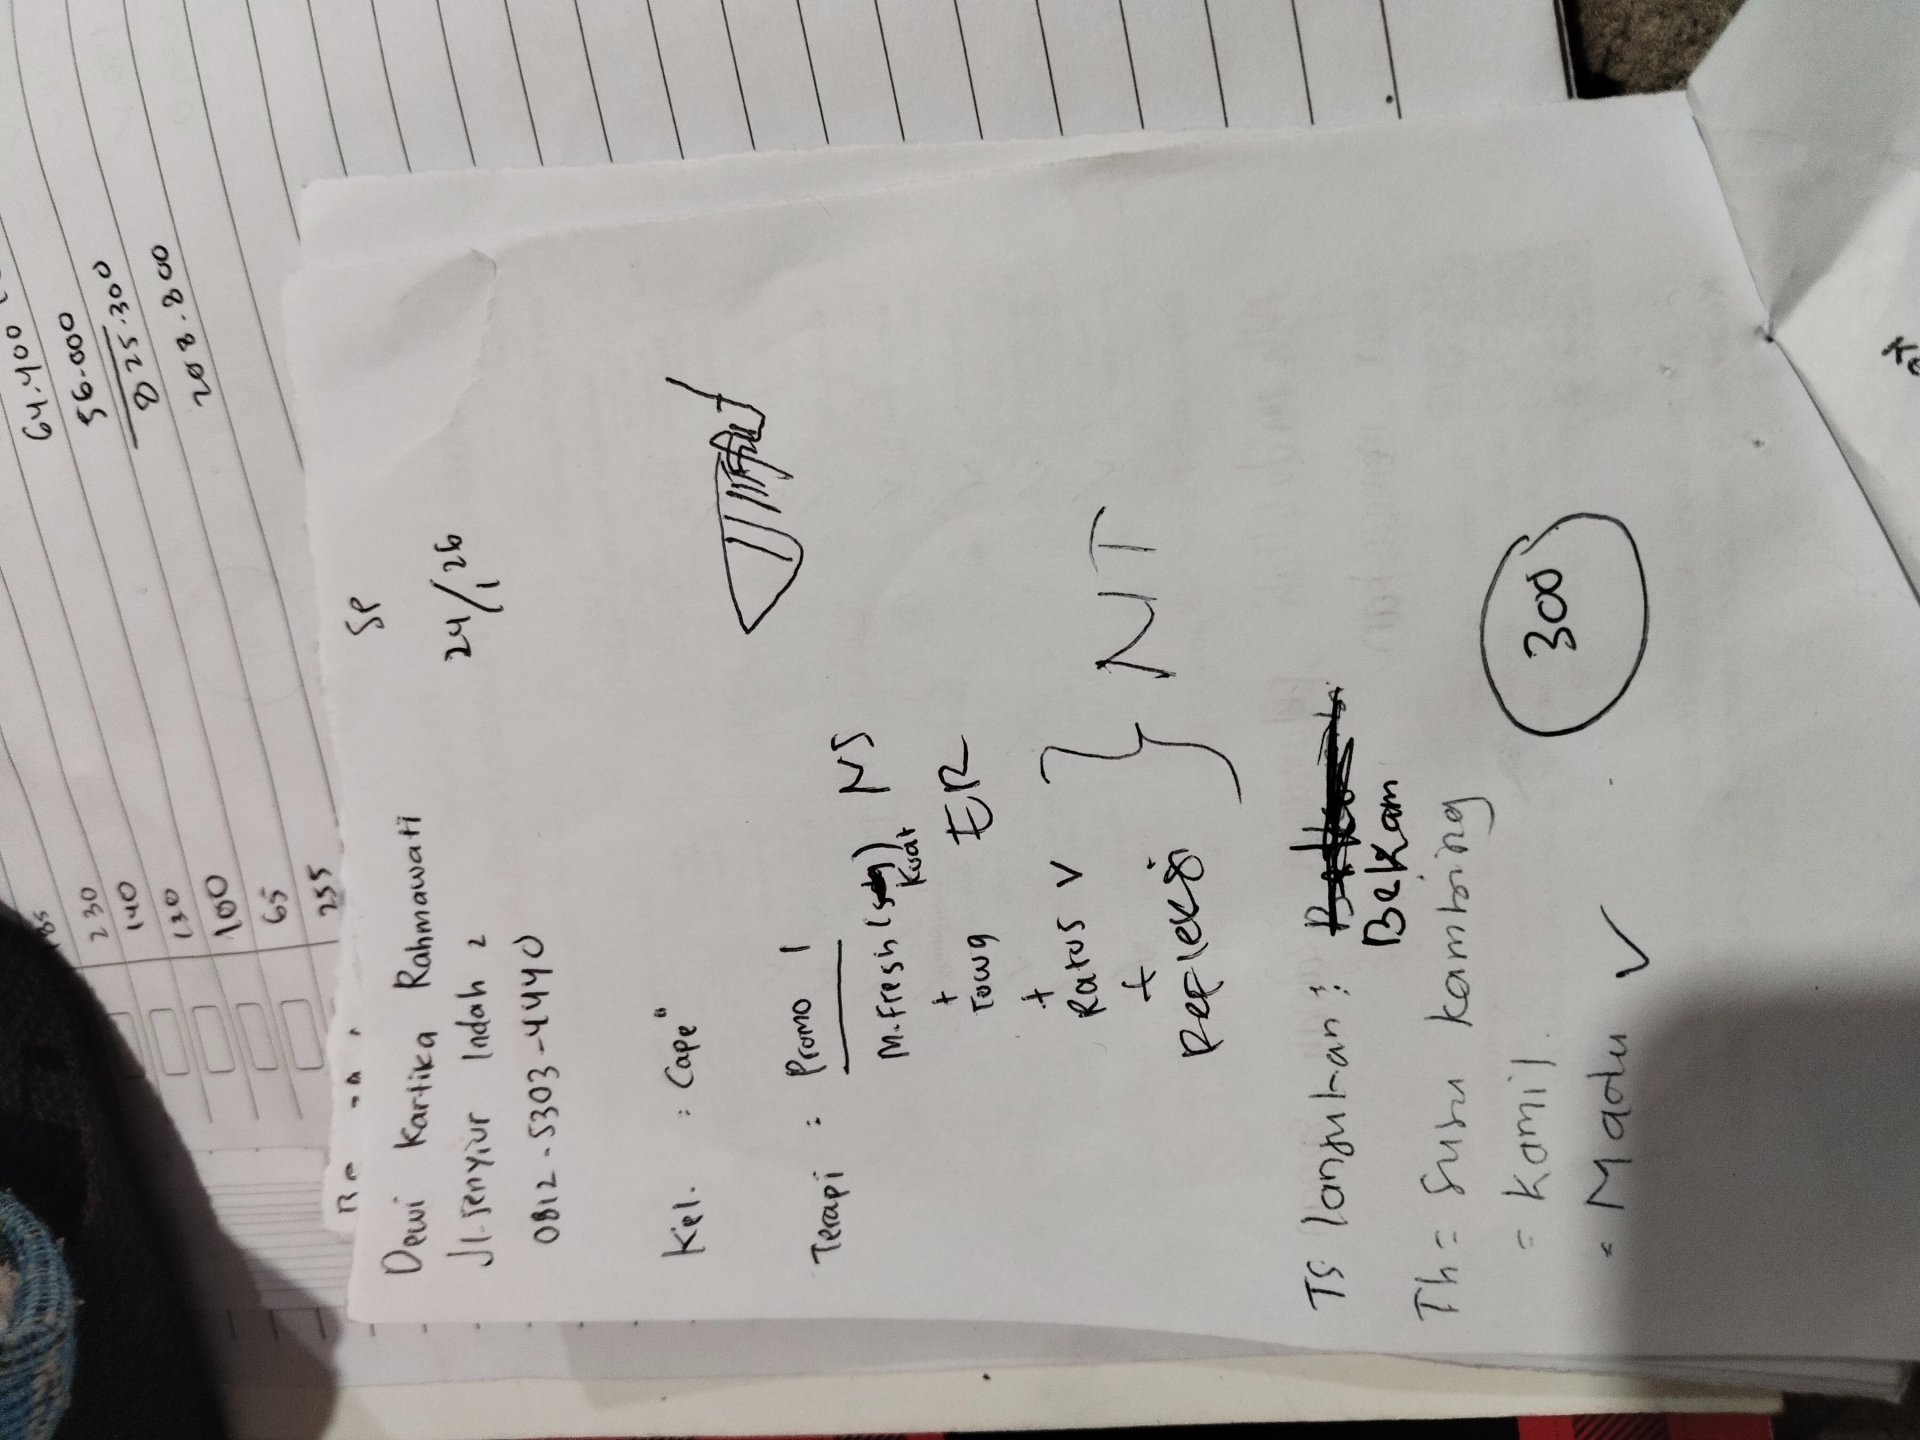 64.400
56.000
825.300
208.800
230
140
130
100
65
255
SP
24/1 26
Dewi Kartika Rahmawati
Jl. Senyiur Indah 2
0812-5303-4440
Kel. : Cape"
Terapi : Promo 1
M. Fresh ( ) NS
Kuat
+
Towg ER
+
Ratus V
+
Refleksi
} NT
TS lanjutan :
Bekam
Th = Susu kambing
= Kamil.
= Madu V
300